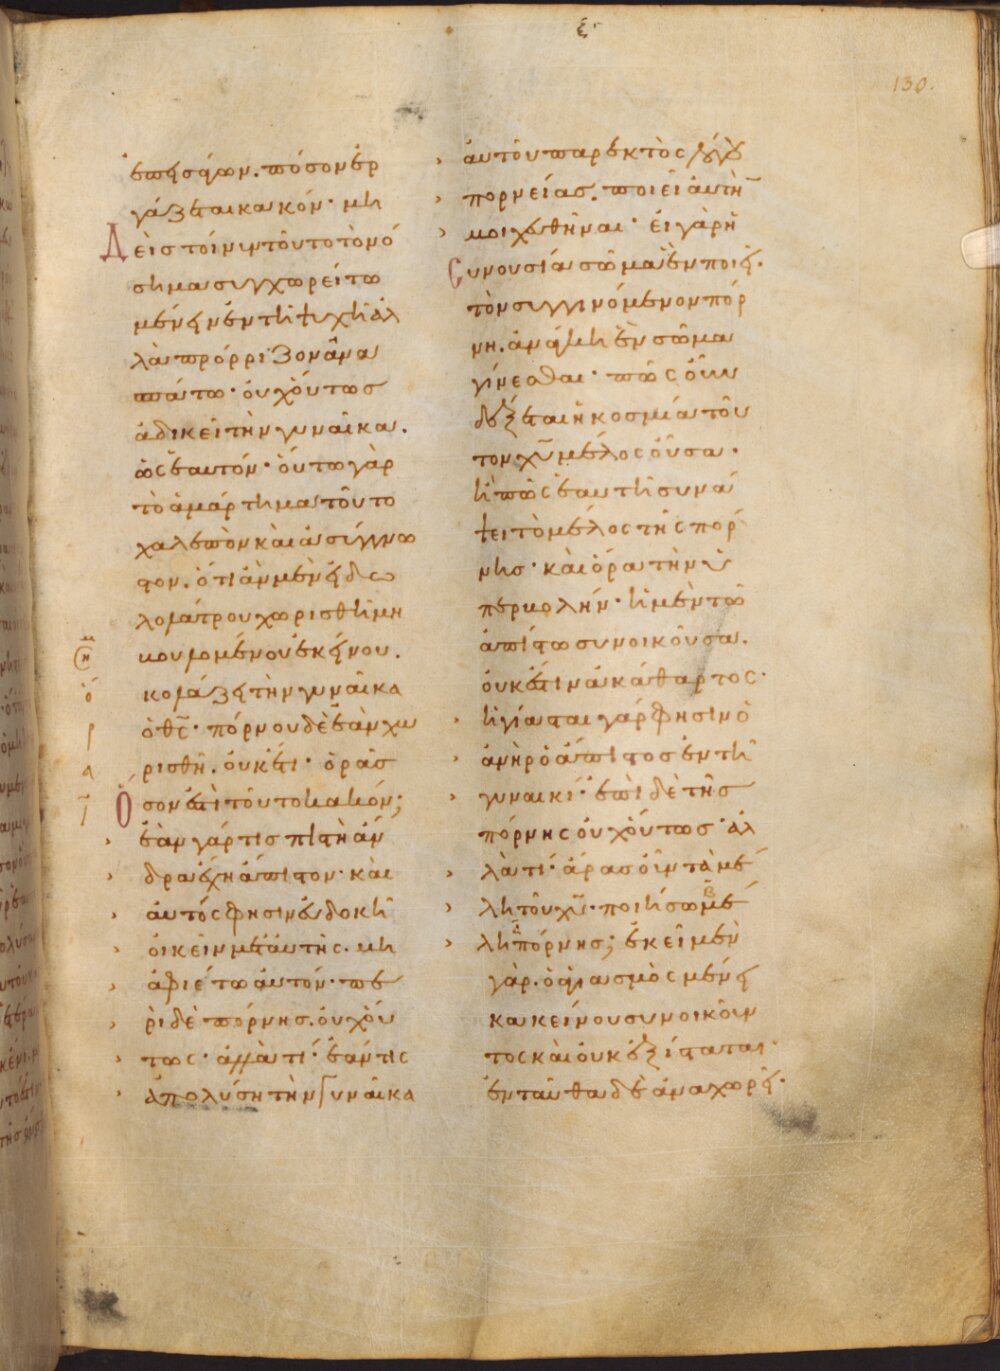 ξ
130.
ἐπεισάγων. πόσον ἐρ
γάζεται κακόν· μη
Δεὶς τοίνυν τοῦτο τὸ νό
σημα συγχωρείτω
μένειν ἐν τῆ ψυχῆ ἀλ
λὰ πρόρριζον ἀνα
σπάτω· οὐχ οὕτως
ἀδικεῖ τὴν γυναῖκα.
ὡς ἑαυτόν· οὕτω γὰρ
τὸ ἁμάρτημα τοῦτο
χαλεπὸν καὶ ἀσύγγνω
στον. ὅτι ἂν μὲν εἰδω
λολάτρου χωρισθῆ μὴ
βουλομένου ἐκείνου.
κολάζει τὴν γυναῖκα
ὁ θς̄· πόρνου δὲ ἐὰν χω
ρισθῆ. οὐκέτι· ὁρᾶς
Ὅσον ἐστὶ τοῦτο κακόν;
ἐὰν γάρ τις πιστὴ ἄν
δρα ἔχη ἄπιστον· καὶ
αὐτός φησιν εὐδοκῆ
οἰκεῖν μετ' αὐτῆς. μὴ
ἀφιέτω αὐτόν· πε
ρὶ δὲ πόρνης. οὐχ οὕ
τως· ἀλλὰ τί· ἐάν τις
ἀπολύση τὴν γυναῖκα
αὐτοῦ παρεκτὸς λόγου
πορνείας. ποιεῖ αὐτὴ̄
μοιχευθῆναι· εἰ γὰρ ἡ
Συνουσία σῶμα ἓν ποιεῖ.
τὸν συγγινόμενον πόρ
νη. ἀνάγκη ἓν σῶμα
γίνεσθαι· πῶς οὖν
δέξεται ἡ κοσμία τοῦ
τον χῡ μέλος οὖσα·
ἢ πῶς ἑαυτῆ συνά
ψει τὸ μέλος τῆς πόρ
νης· καὶ ὅρα τὴν ὑ
περβολήν· ἡ μὲν τῶ
ἀπίστω συνοικοῦσα.
οὐκ ἔστιν ἀκάθαρτος·
ἡγίασται γάρ φησιν ὁ
ἀνὴρ ὁ ἄπιστος ἐν τῆ
γυναικί· ἐπὶ δὲ τῆς
πόρνης οὐχ οὕτως· ἀλ
λὰ τί· ἄρας οὖν τὰ μέ
λη τοῦ χῡ· ποιήσω μέ
λη πόρνης; ἐκεῖ μὲν
γὰρ. ὁ ἁγιασμὸς μένει
κἀκείνου συνοικοῦν
τος καὶ οὐκ ἐξίσταται·
ἐνταῦθα δὲ ἀναχωρεῖ·